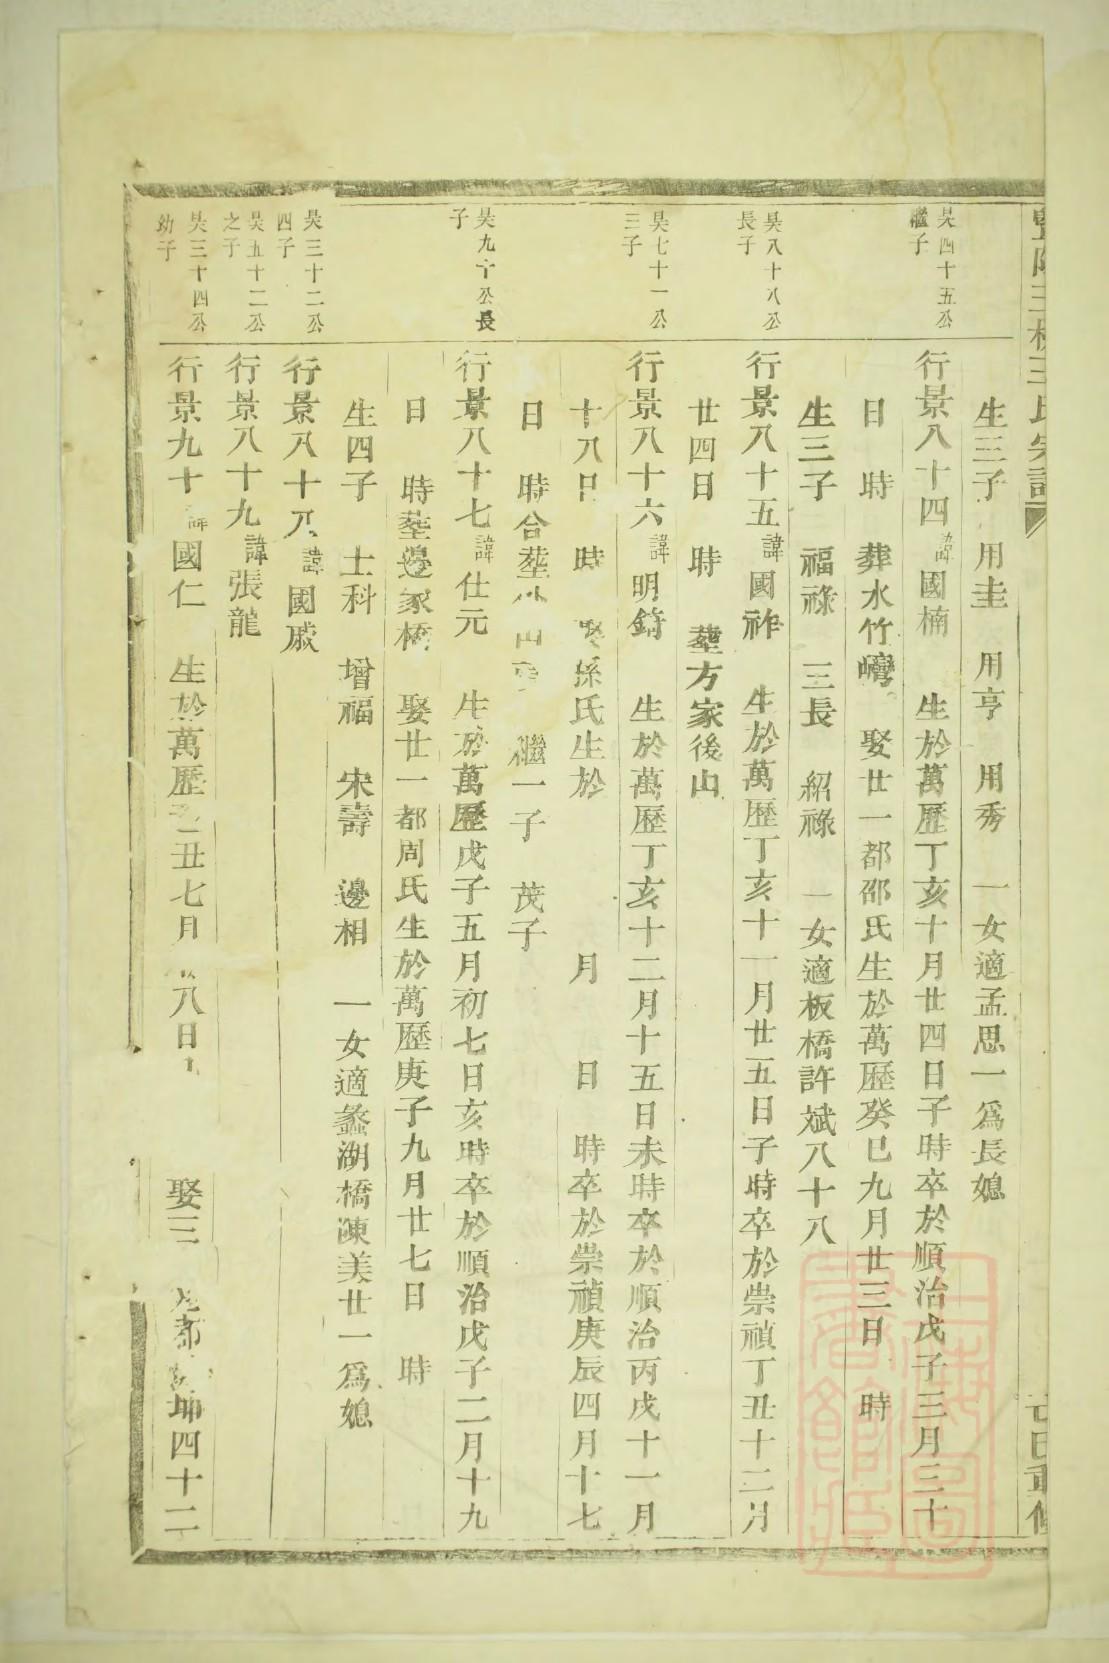 生三子 用圭 用亨 用秀 一女適孟思一爲長媳
昊四十五公
繼子
行景八十四諱國楠 生於萬歷丁亥十月廿四日子時卒於順治戊子三月三十
日 時 葬水竹灣 娶廿一都邵氏生於萬歷癸巳九月廿三日 時
生三子 福祿 三長 紹祿 一女適板橋許斌八十八
昊八十八公
長子
行景八十五諱國祚 生於萬歷丁亥十一月廿五日子時卒於崇禎丁丑十二月
廿四日 時 塟方家後山
昊七十一公
三子
行景八十六諱明錡 生於萬歷丁亥十二月十五日未時卒於順治丙戌十一月
十八日 時 娶孫氏生於 月 日 時卒於崇禎庚辰四月十七
日 時合塟 山 繼一子 茂子
昊九十公長
子
行景八十七諱仕元 生於萬歷戊子五月初七日亥時卒於順治戊子二月十九
日 時塟邊家橋 娶廿一都周氏生於萬歷庚子九月廿七日 時
生四子 士科 增福 宋壽 邊相 一女適蠡湖橋陳美廿一爲媳
昊三十二公
四子
行景八十八諱國威
昊五十二公
之子
行景八十九諱張龍
昊三十四公
幼子
行景九十諱國仁 生於萬歷 丑七月 八日 娶三 都 坤四十二